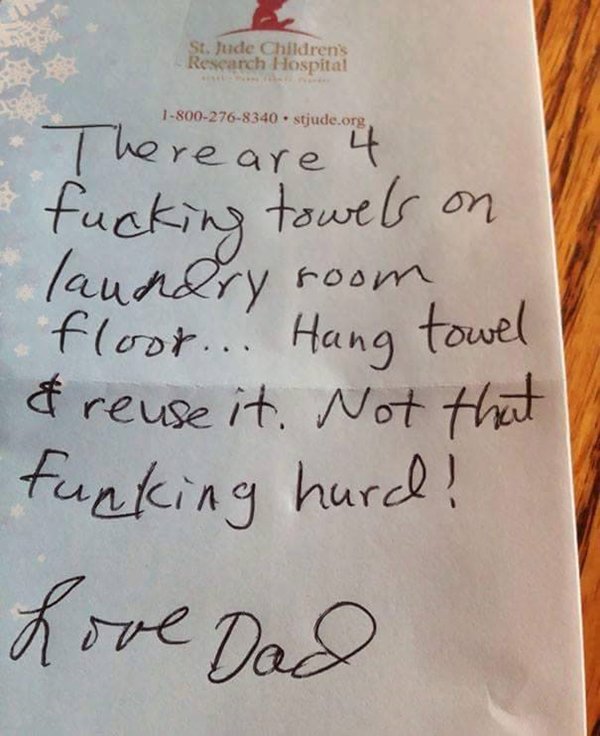 St. Jude Children's
Research Hospital
1-800-276-8340 • stjude.org
There are 4
fucking towels on
laundry room
floor... Hang towel
& reuse it. Not that
fucking hard!
Love Dad